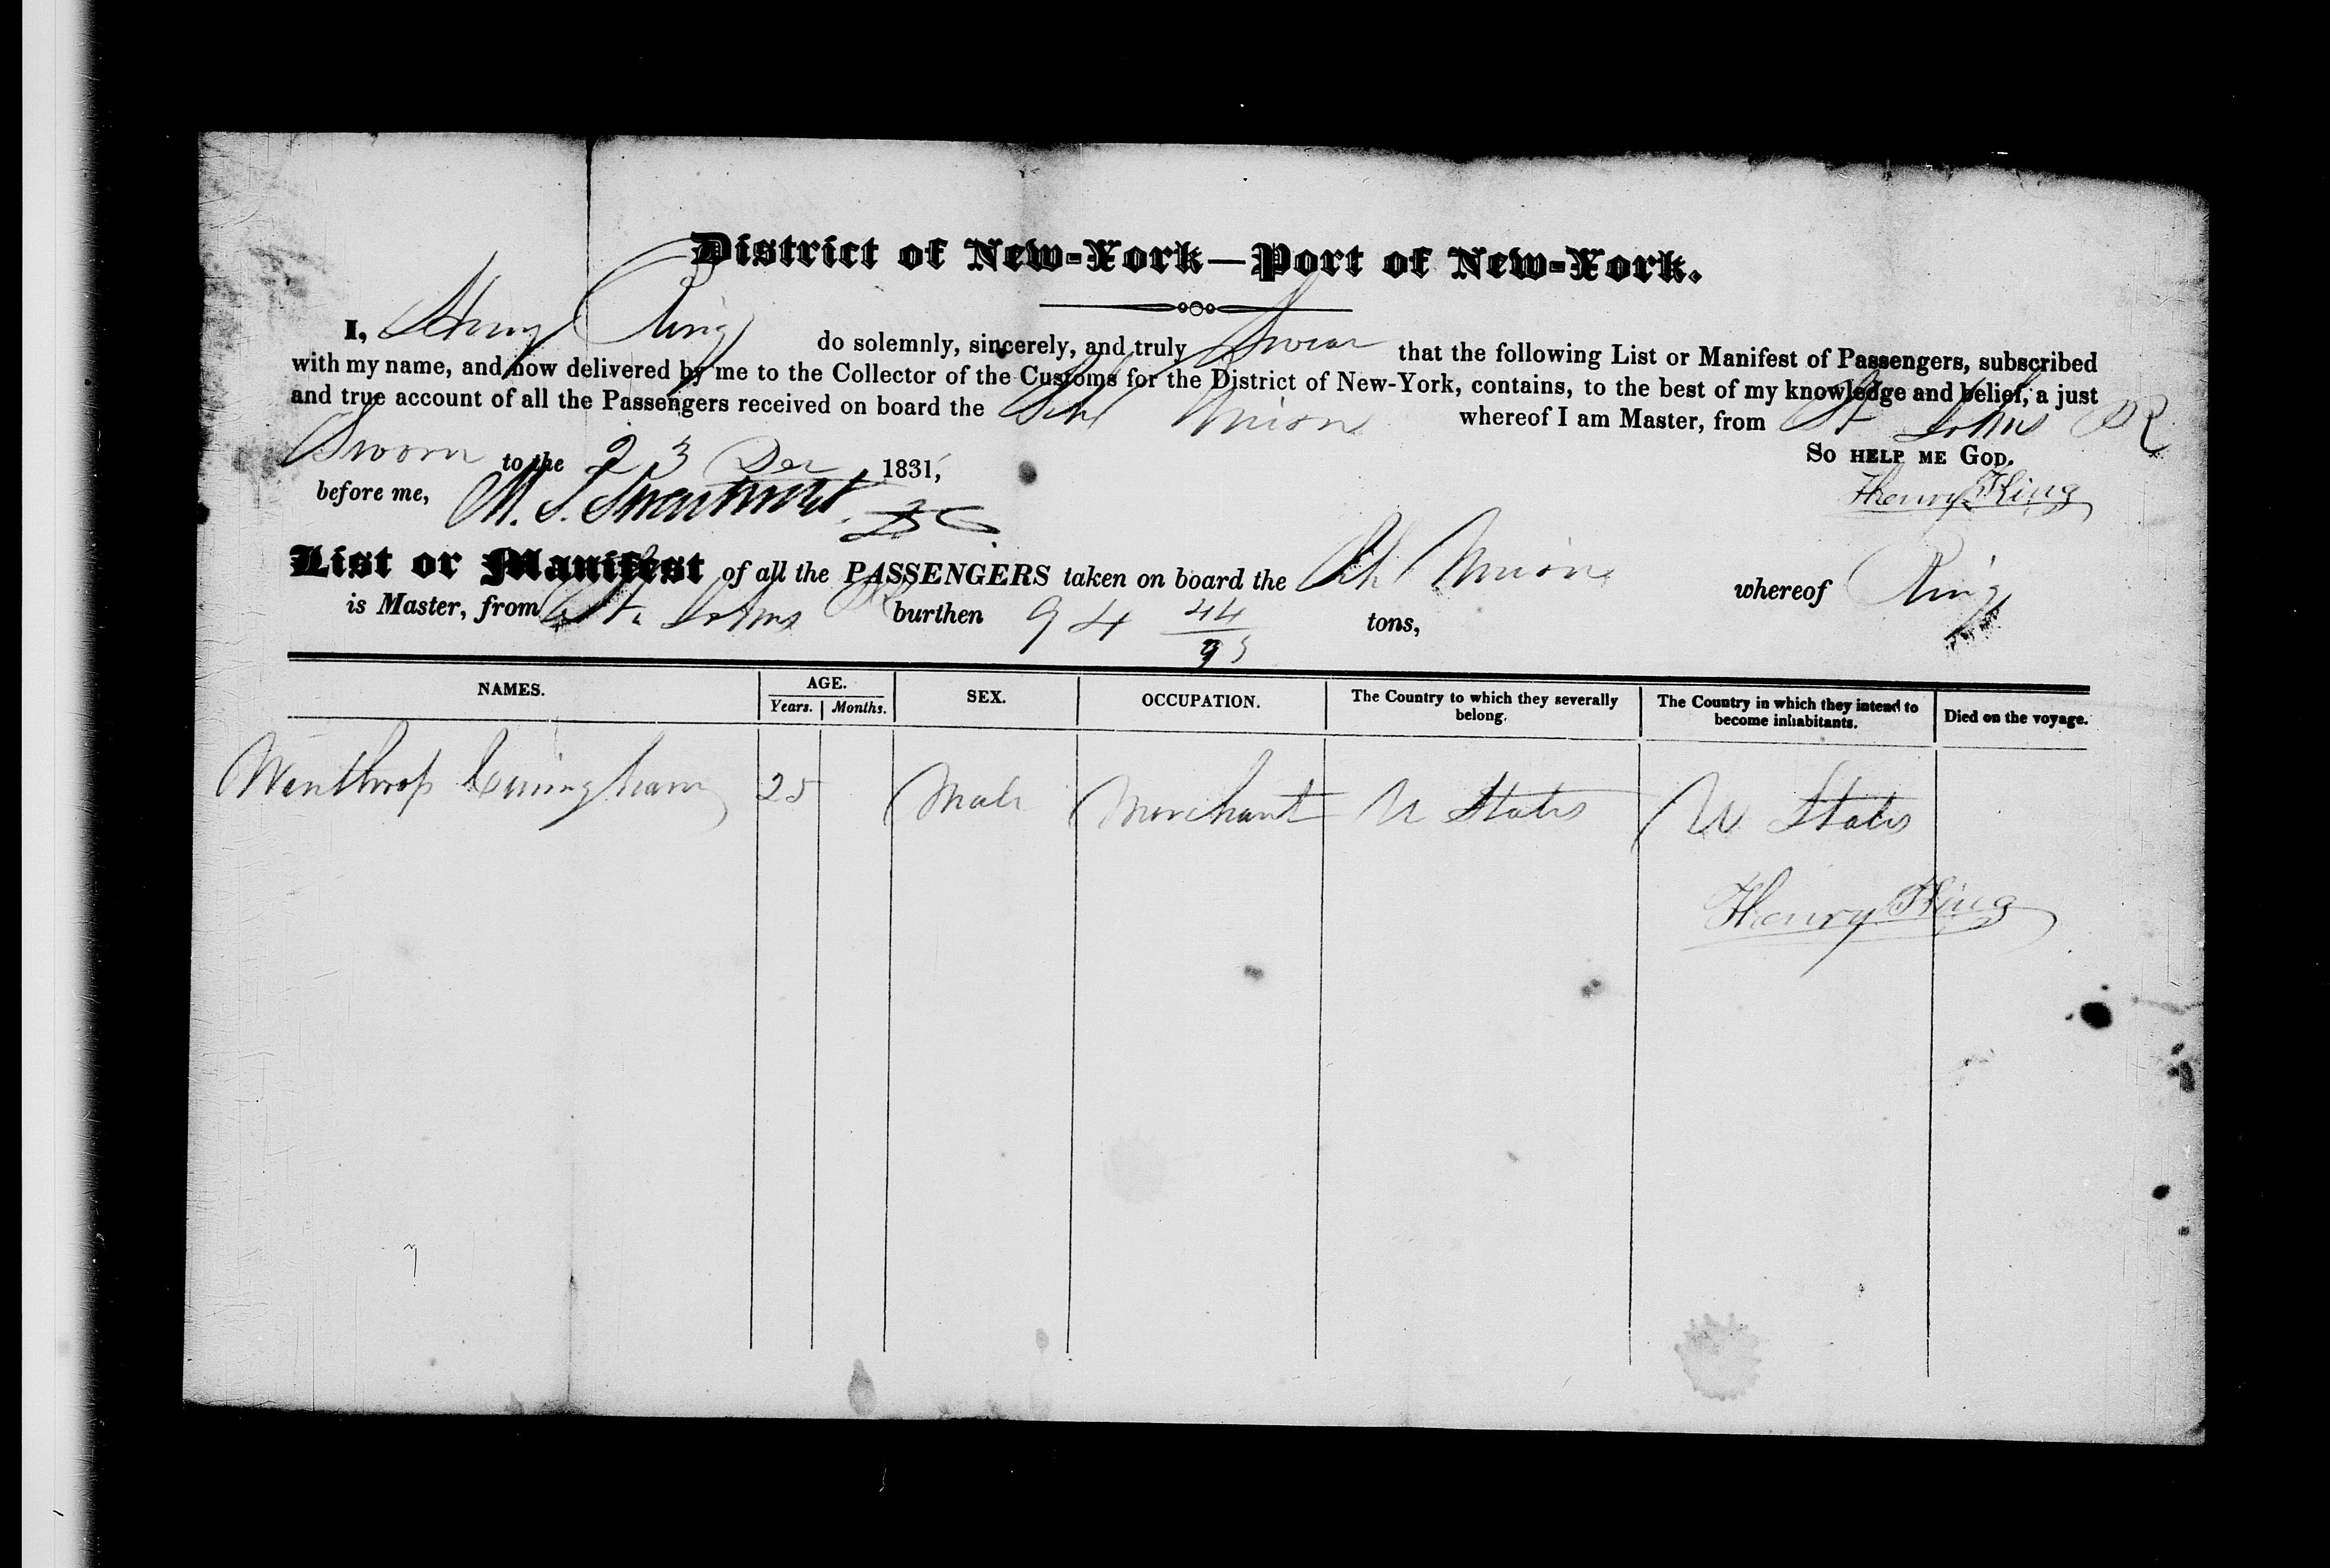 District of New-York—Port of New-York.
I, Henry Ring do solemnly, sincerely, and truly Swear that the following List or Manifest of Passengers, subscribed
with my name, and now delivered by me to the Collector of the Customs for the District of New-York, contains, to the best of my knowledge and belief, a just
and true account of all the Passengers received on board the Sch Union whereof I am Master, from St Johns PR
Sworn to the 23 Dec 1831, So help me God.
before me, M. S. Swartwout DC Henry Ring
List or Manifest of all the PASSENGERS taken on board the Sch Union whereof Ring
is Master, from St. Johns PR burthen 94 44/95 tons,
NAMES. AGE. Years. Months. SEX. OCCUPATION. The Country to which they severally belong. The Country in which they intend to become inhabitants. Died on the voyage.
Winthrop Cuningham 25 Male Merchant U States U States
Henry Ring